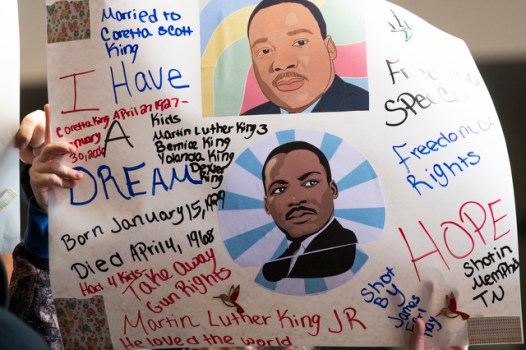 Married to
Coretta Scott
King
I Have
A
DREAM
Coretta King April 27 1927-
January
30, 2006
Kids
Martin Luther King 3
Bernice King
Yolanda King
Dexter
King
Born January 15, 1929
Died April 4, 1968
Had 4 Kids
Take Away
Gun Rights
Martin Luther King JR
He loved the world
Speech
Freedom Of
Rights
HOPE
Shot in
Memphis
TN
Shot
By
James